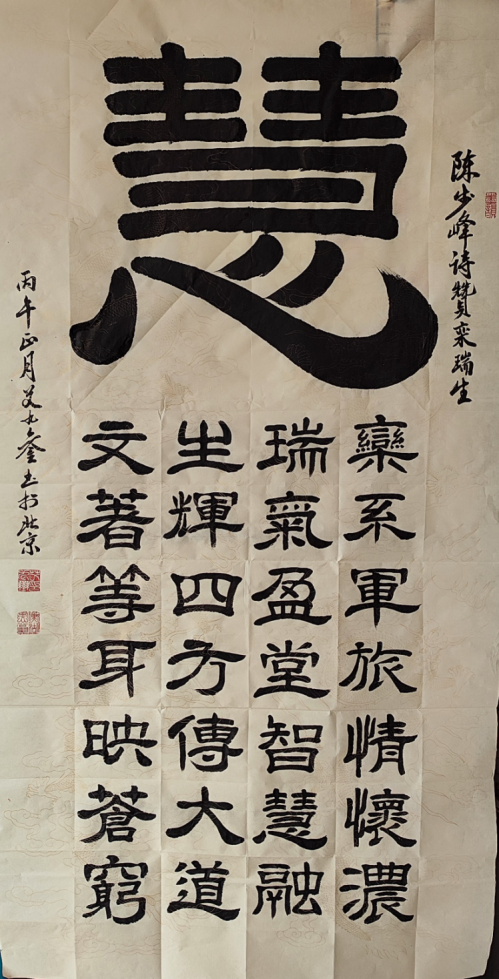 慧
陈步峰诗贊栾瑞生
欒系軍旅情懷濃
瑞氣盈堂智慧融
生輝四方傳大道
文著等耳映蒼窮
丙午正月艾书於北京